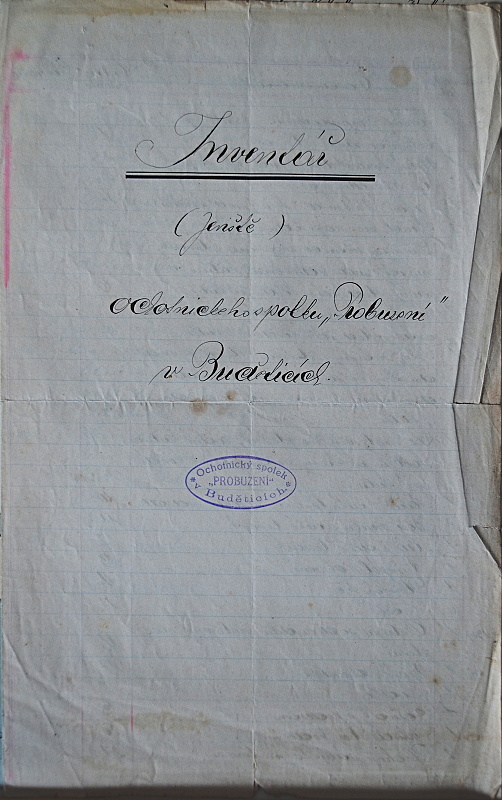 Inventář
(Jeviště)
ochotnického spolku „Probuzení"
v Budětících.
* Ochotnický spolek *
„PROBUZENÍ"
v Buděticích.